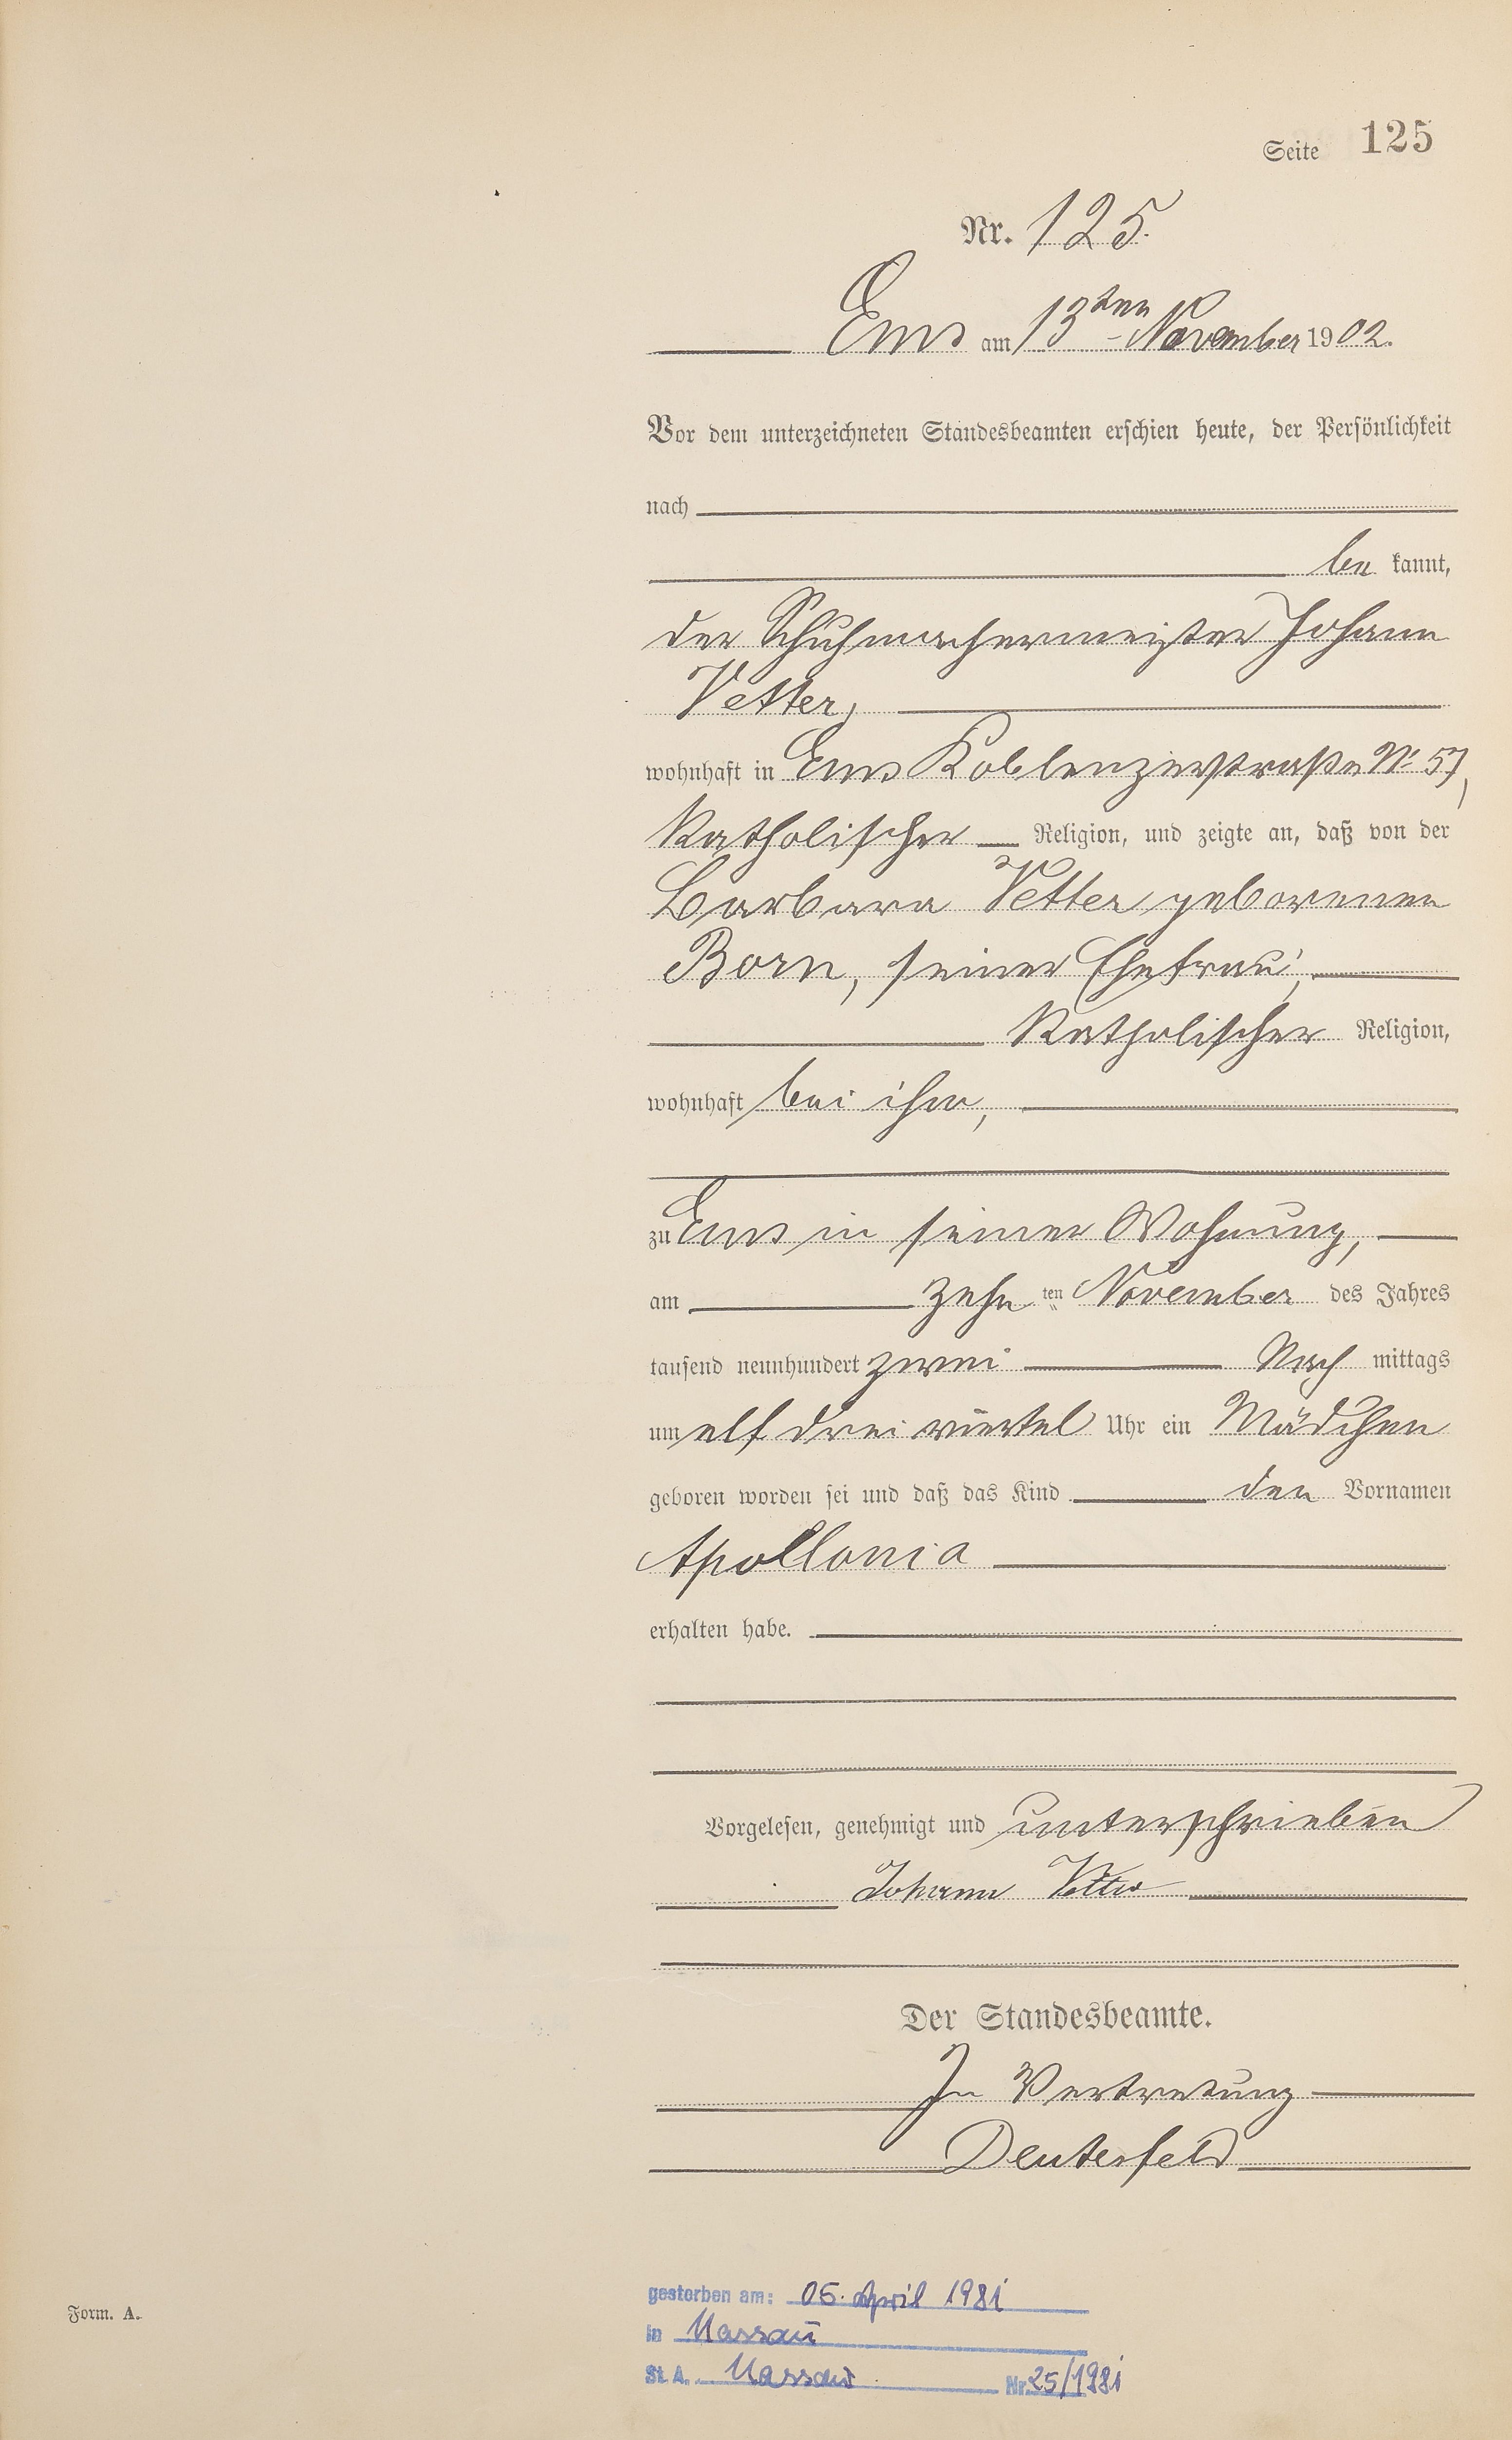 Seite 125
Nr. 125.
Ems am 13ten November 1902.
Vor dem unterzeichneten Standesbeamten erschien heute, der Persönlichkeit
nach
be kannt,
der Schuhmachermeister Johann
Vetter,
wohnhaft in Ems Koblenzerstraße No 57,
katholischer Religion, und zeigte an, daß von der
Barbara Vetter geborenen
Born, seiner Ehefrau,
katholischer Religion,
wohnhaft bei ihm,
zu Ems in seiner Wohnung,
am zehn ten November des Jahres
tausend neunhundert zwei Nach mittags
um elf drei viertel Uhr ein Mädchen
geboren worden sei und daß das Kind den Vornamen
Apollonia
erhalten habe.
Vorgelesen, genehmigt und unterschrieben
Johann Vetter
Der Standesbeamte.
In Vertretung
Deuterfeld
gestorben am: 05. April 1981
in Nassau
St. A. Nassau Nr. 25/1981
Form. A.